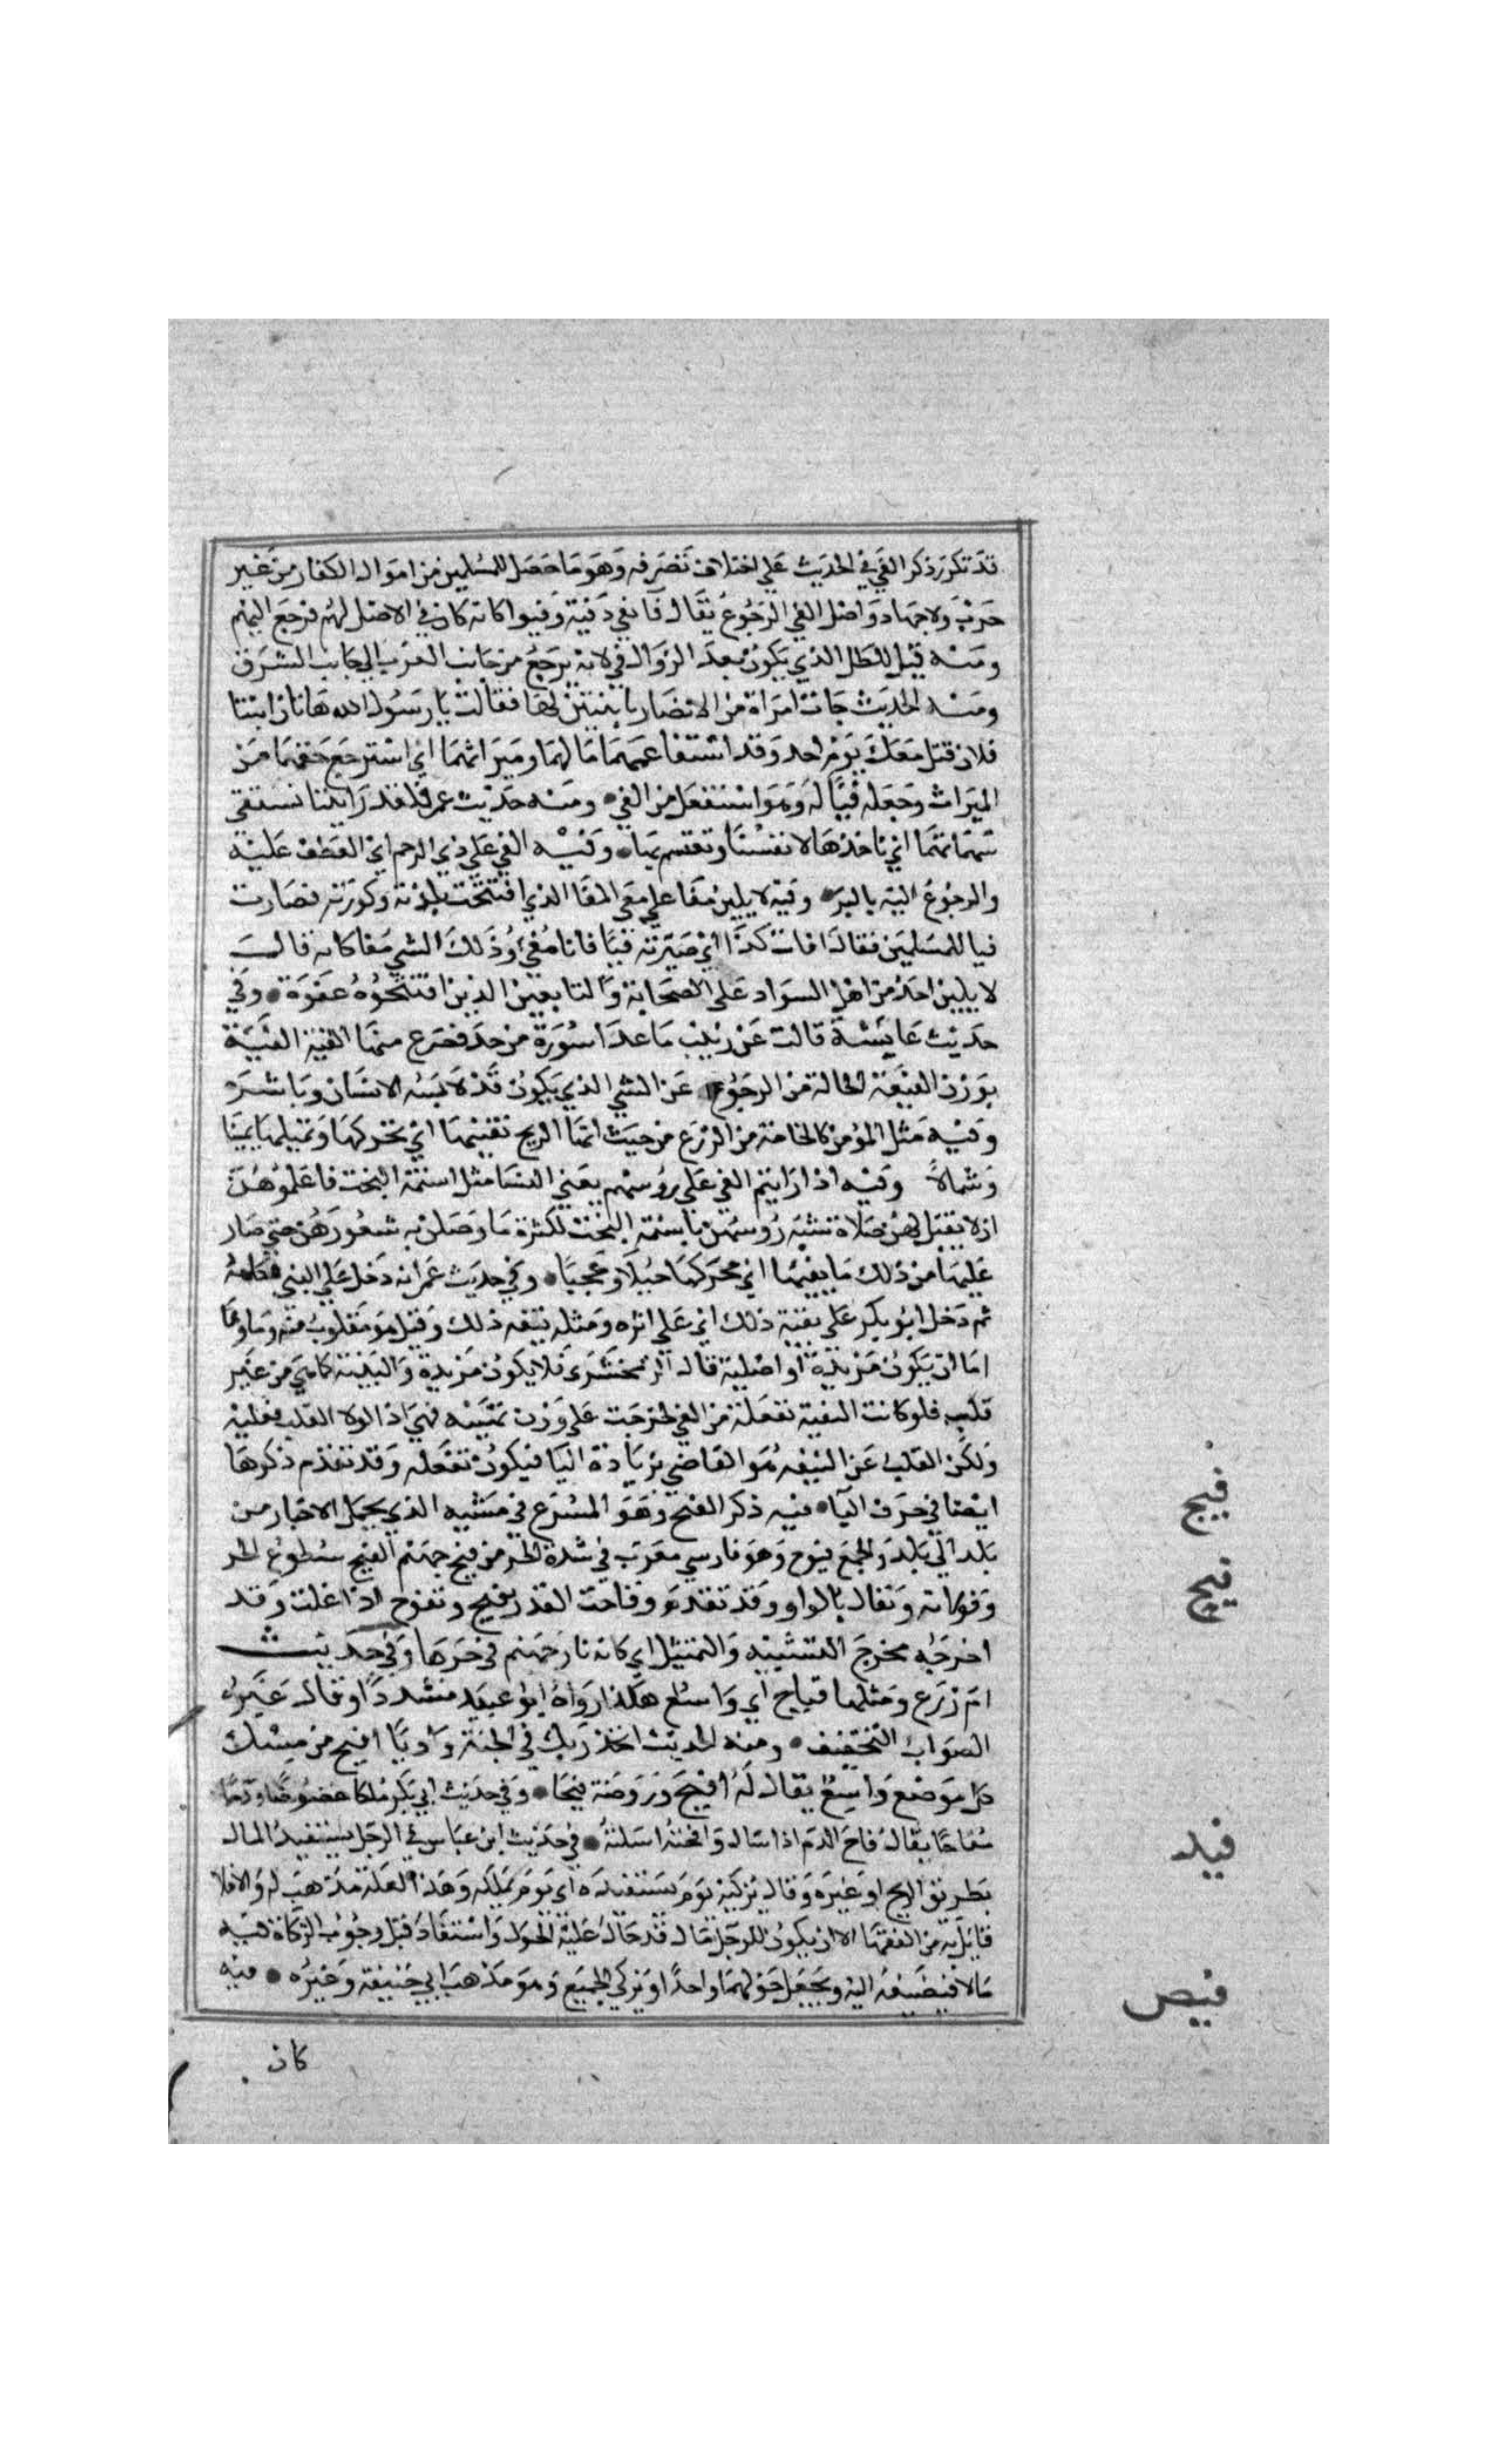 قد تكرر ذكر الفي في الحديث علي اختلاف تصرفه وهو ما حصل للمسلمين من اموال الكفار من غير
حرب ولا جهاد واصل الفي الرجوع يقال فا يفي فية وفيوا كانه كان في الاصل لهم فرجع اليهم
ومنه قيل للظل الذي يكون بعد الزوال في لانه يرجع من جانب الغرب الي جانب الشرق
ومنه الحديث جات امراة من الانصار بابنتين لها فقالت يا رسول الله هاتان ابنتا
فلان قتل معك يوم احد وقد استفا عمهما مالهما وميراثهما اي استرجع حقهما من
الميراث وجعله فيا له وهو استفعل من الفي ومنه حديث عمر فلقد رايتنا نستفي
سهماتهما اي ناخذها لانفسنا ونقتسم بها وفيه الفي علي ذي الرحم اي العطف عليه
والرجوع اليه بالبر وفيه لا يلين مفا علي مفي المفا الذي افتتحت بلدته وكورته فصارت
فيا للمسلمين فقال افات كذا اي صيرته فيا فانا مفي وذلك الشي مفا كانه قال
لا يلين احد من اهل السواد علي الصحابة والتابعين الذين افتتحوه عنوة وفي
حديث عايشة قالت عن زينب ما عدا سورة من حد فحرع منها الفية الفية
بوزن الفيعة الحالة من الرجوع عن الشي الذي يكون قد لابسه الانسان وباشره
وفيه مثل المؤمن كالخامة من الزرع من حيث اتتها الريح تفيئها اي تحركها وتميلها يمينا
وشمالا وفيه اذا رايتم الفي علي رؤسهم يعني النسا مثل اسنمة البخت فاعلموهن
ان لا يقبل لهن صلاة تشبه رؤسهن باسنمة البخت لكثرة ما وصلن به شعورهن حتي صار
عليها من ذلك ما يفيها اي يحركها خيلا وعجبا وفي حديث عمر انه دخل علي النبي فكلمه
ثم دخل ابو بكر علي تفية ذلك اي علي اثره ومثله تيفه ذلك وقيل هو مقلوب منه وتاوها
اما ان يكون مزيدة او اصلية قال الزمخشري فلا يكون مزيدة والبنية كما هي من غير
قلب فلو كانت التفية تفعلة من الفي لخرجت علي وزن تهيئه فهي اذا لولا القلب فعلية
ولكن القلب عن التيفه هو القاضي بزيادة اليا فيكون تفعله وقد تقدم ذكرها
ايضا في حرف اليا فيه ذكر الفيج وهو المسرع في مشيه الذي يحمل الاخبار من
بلد الي بلد والجمع فيوج وهو فارسي معرب في شدة الحر من فيح جهنم الفيح سطوع الحر
وفورانه ويقال بالواو وقد تقدم وفاحت القدر تفيح وتفوح اذا غلت وقد
اخرجه مخرج التشبيه والتمثيل اي كانه نار جهنم في حرها وفي حديث
ام زرع ومثلها فياح اي واسع هكذا رواه ابو عبيد مشددا وقال غيره
الصواب التخفيف ومنه الحديث اتخذ ربك في الجنة واديا افيح من مسك
كل موضع واسع يقال له افيح وروضة فيحا وفي حديث ابي بكر ملكا عضوضا ودما
مفاحا يقال فاح الدم اذا سال وافحته اسلته في حديث ابن عباس في الرجل يستفيد المال
بطريق الربح او غيره وقال يزكيه يوم يستفيده اي يوم يملكه وهذا لعله مذهب له والا فلا
قايل به من الفقها الا ان يكون للرجل مال قد حال عليه الحول واستفاد قبل وجوب الزكاة فيه
مالا فيضيفه اليه ويجعل حولهما واحدا ويزكي الجميع وهو مذهب ابي حنيفة وغيره فيه
كان
فيج
فيح
فيد
فيص